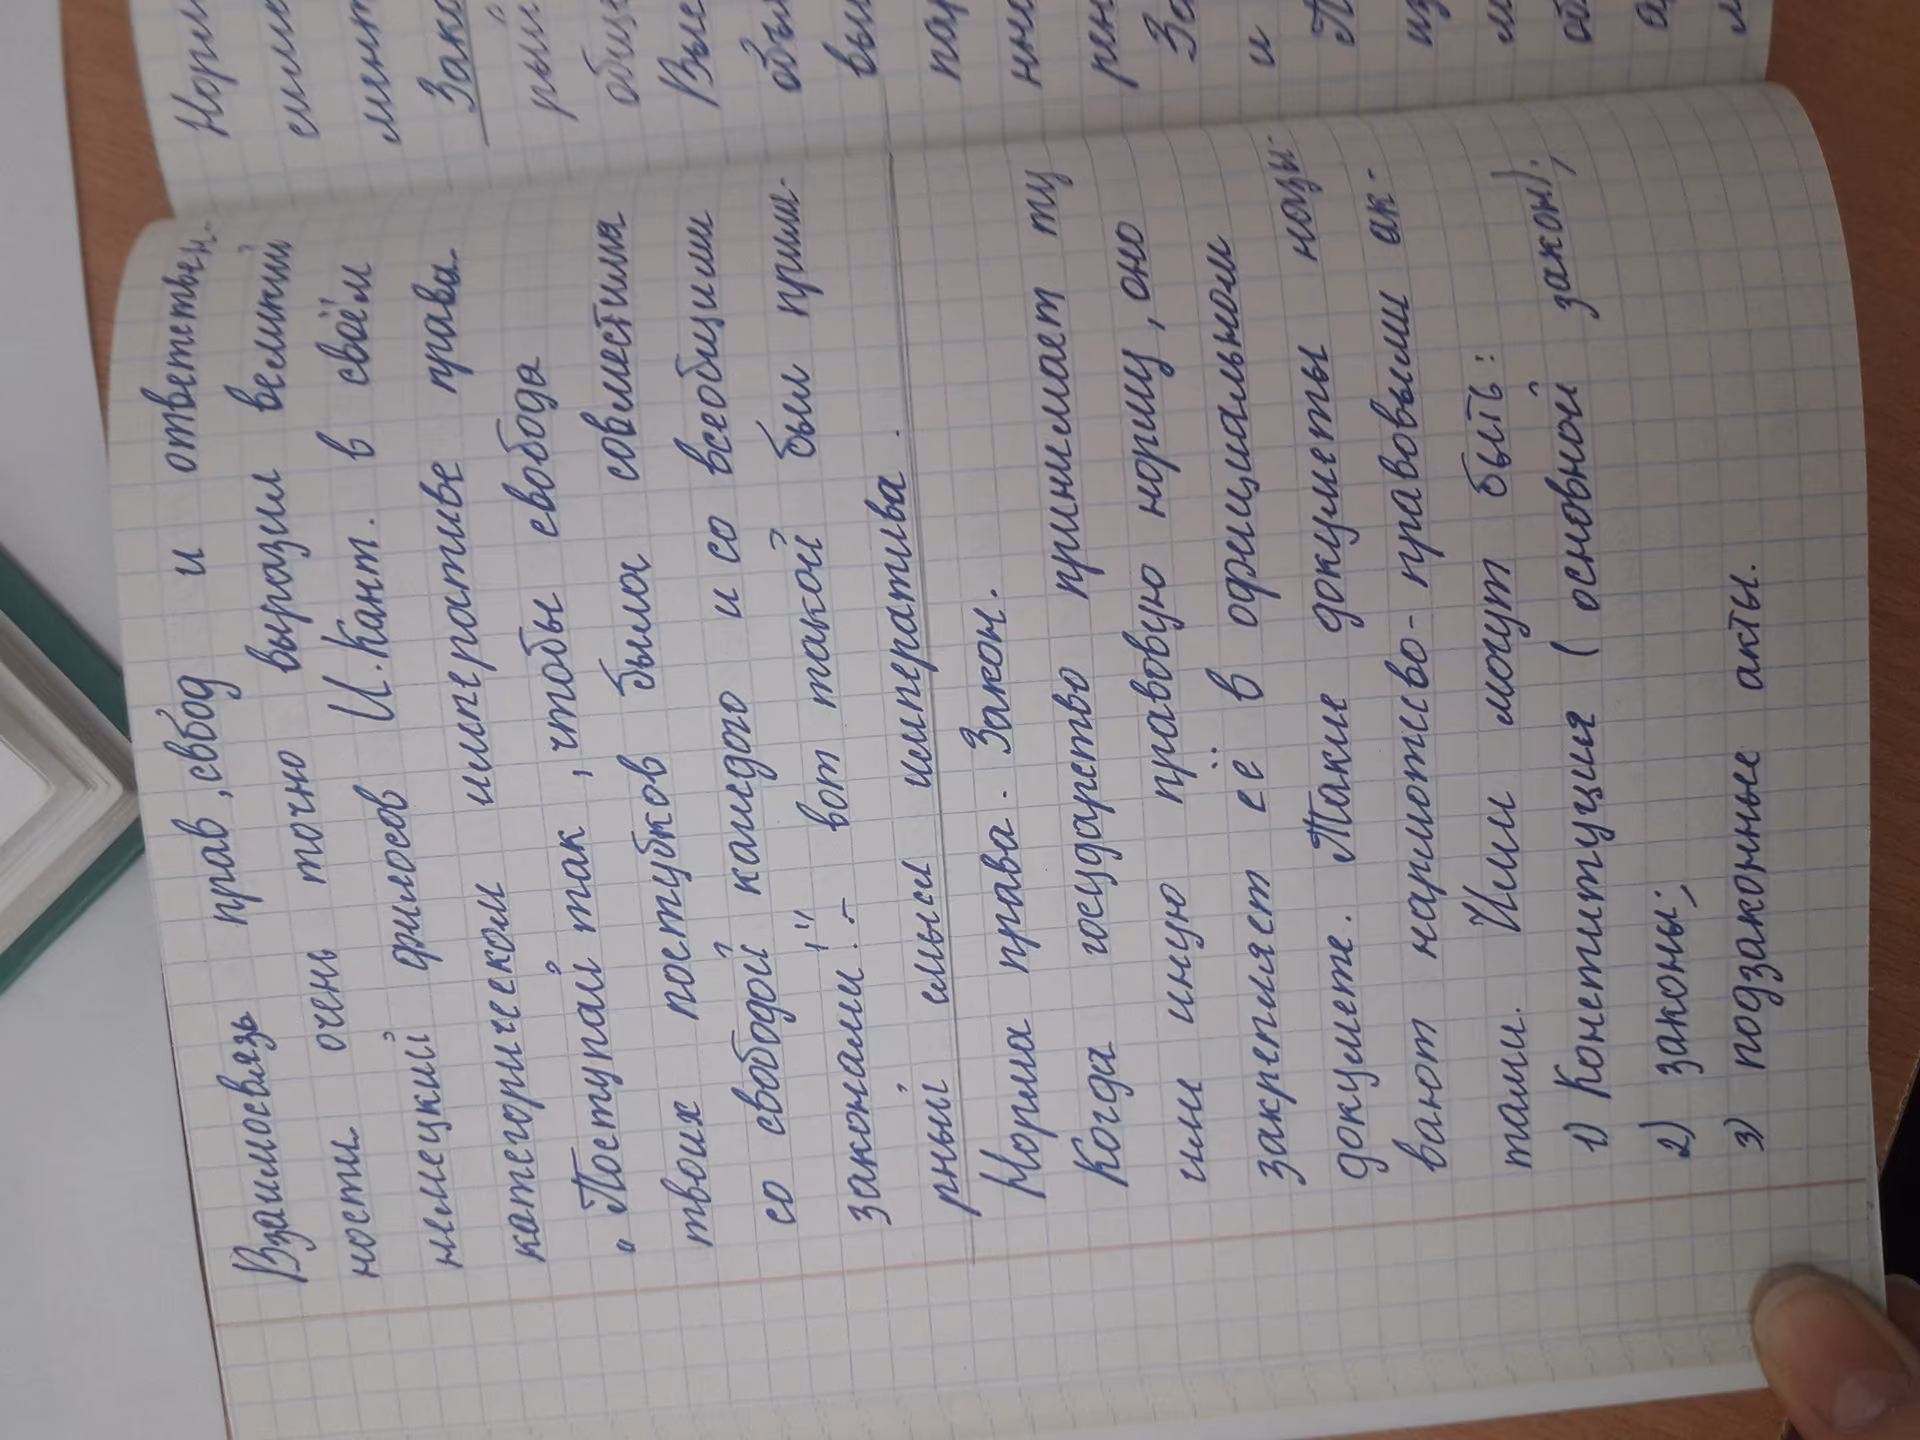 Взаимосвязь прав, свбод и ответствен-
ности очень точно выразил великий
немецкий филосов И. Кант. в своём
категорическом императиве права.
"Поступай так, чтобы свобода
твоих поступков была совместима
со свободой каждого и со всеобщими
законами!" - вот такой был прим-
рный смысл императива.
Норма права. Закон.
Когда государство принимает ту
или иную правовую норму, оно
закрепляет её в официальном
документе. Такие документы назы-
вают нармотисво-правовыми ак-
тами. Ими могут быть:
1) Конституция (основной закон);
2) законы;
3) подзаконные акты.
Норм
мент
Зако
рый
общ
Выс
объ
вы
пар
нн
рен
За
и
П
из
м
об